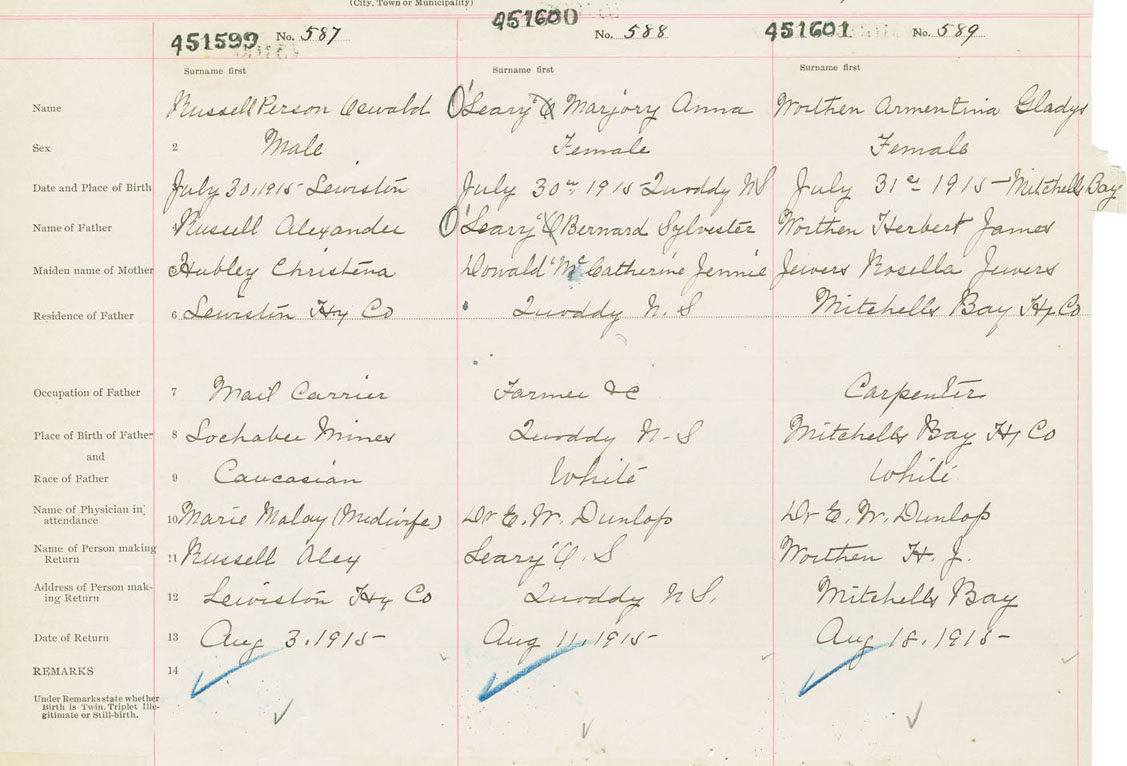 (City, Town or Municipality)
451599 No. 587 451600 No. 588 451601 No. 589
Surname first Surname first Surname first
Name Russell Person Oswald O'Leary O Marjory Anna Worthen Armentina Gladys
Sex 2 Male Female Female
Date and Place of Birth July 30, 1915 - Lewiston July 30th 1915 - Quoddy N S July 31st 1915 - Mitchells Bay
Name of Father Russell Alexander O'Leary O Bernard Sylvester Worthen Herbert James
Maiden name of Mother Hubley Christena Donald Mc Catherine Jennie Jewers Rosella Jewers
Residence of Father 6 Lewiston Hx Co Quoddy N. S Mitchells Bay Hx Co
Occupation of Father 7 Mail Carrier Farmer &c Carpenter
Place of Birth of Father 8 Lochaber Mines Quoddy N-S Mitchells Bay Hx Co
and
Race of Father 9 Caucasian White White
Name of Physician in attendance 10 Marie Malay (Midwife) Dr E. W. Dunlop Dr E. W. Dunlop
Name of Person making Return 11 Russell Alex Leary O. S Worthen H. J.
Address of Person making Return 12 Lewiston Hx Co Quoddy N S. Mitchells Bay
Date of Return 13 Aug 3, 1915 - Aug 11, 1915 - Aug 18, 1915 -
REMARKS 14
Under Remarks state whether
Birth is Twin, Triplet Ille-
gitimate or Still-birth.